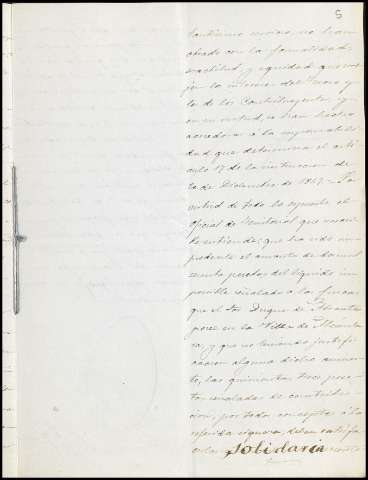 5
obrado con la formalidad,
exactitud y equidad que exi-
jen los intereses del Tesoro y
los de los Contribuyentes, y
en su virtud, se han hecho
acreedores a la responsabili-
dad que determina el artí-
culo 17 de la instruccion de
20 de Diciembre de 1847.= En
virtud de todo lo expuesto el
oficial de Territorial que suscri-
be entiende: que ha sido im-
procedente el aumento de dos mil
pesetas del líquido im-
ponible señalado a las fincas
que el Sor Duque de Abrantes
posee en la Villa de
y que no teniendo justifi-
cacion alguna dicho aumen-
to, las quinientas tres pese-
tas señaladas de contribu-
cion, por todo concepto á la
referida riqueza, deben satisfa-
solidaria